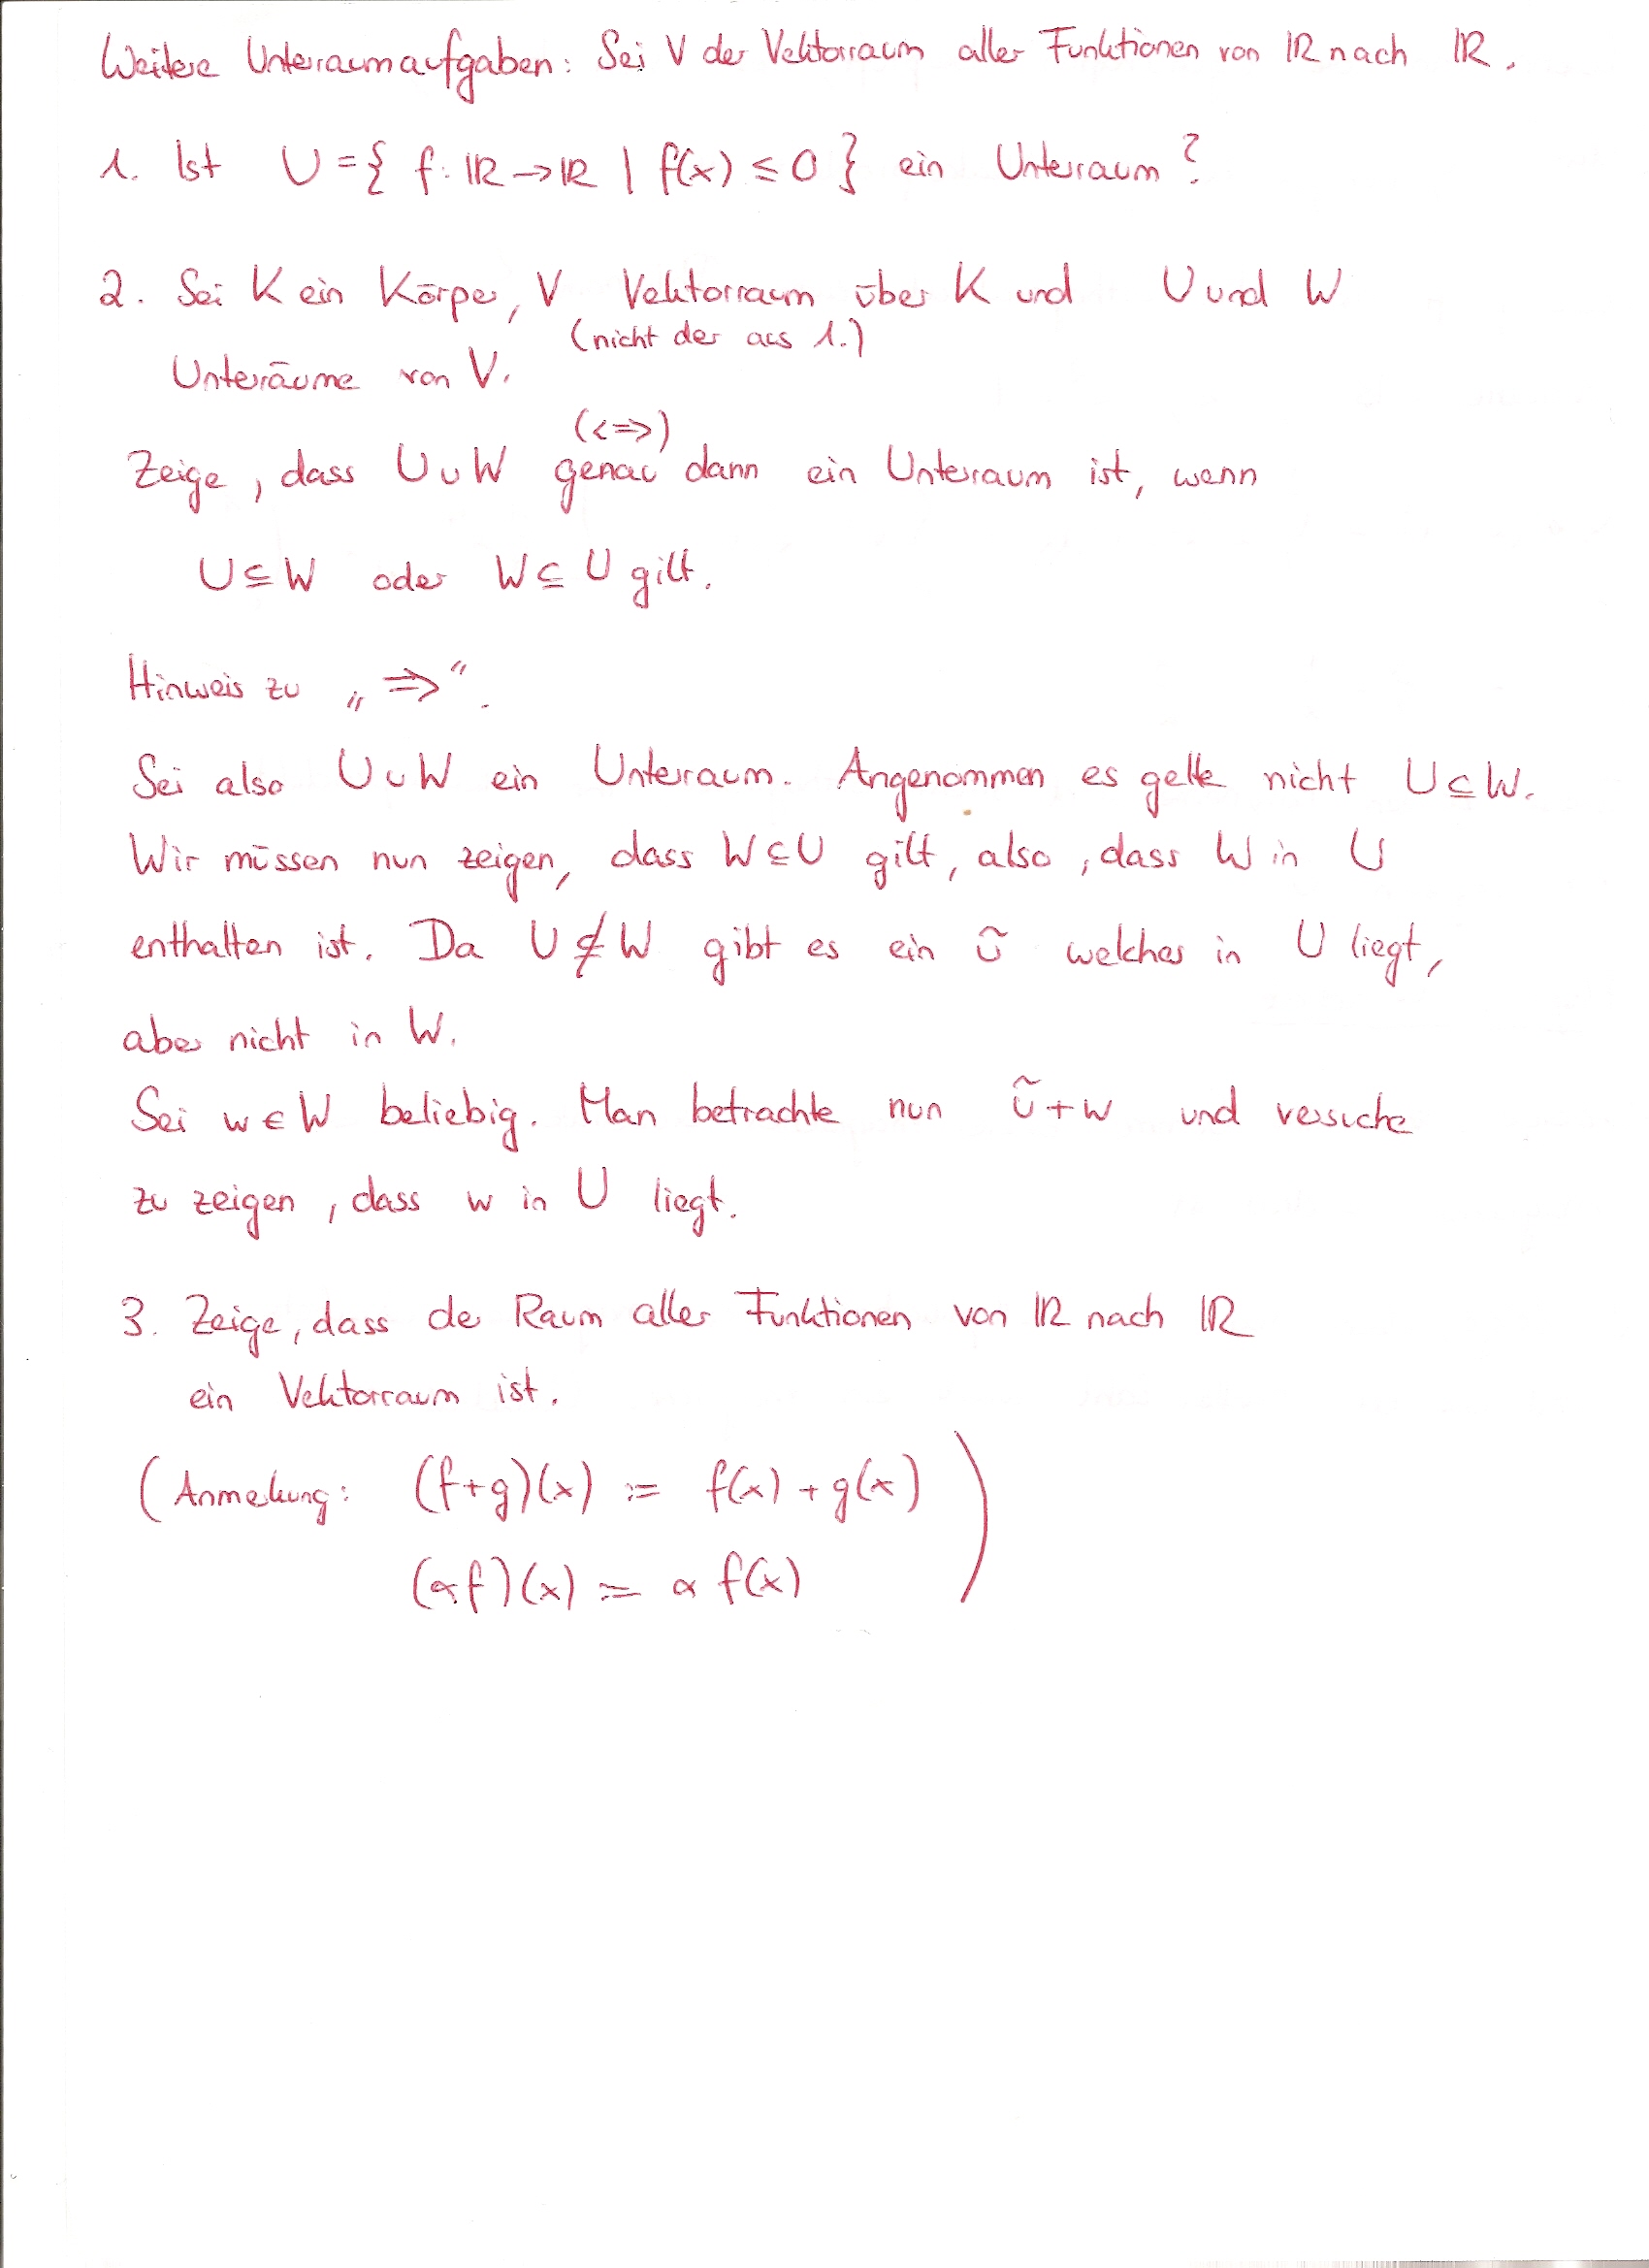 Weitere Unterraumaufgaben: Sei V der Vektorraum aller Funktionen von ℝ nach ℝ.
1. Ist U = { f: ℝ → ℝ | f(x) ≤ 0 } ein Unterraum?
2. Sei K ein Körper, V Vektorraum über K und U und W
(nicht der aus 1.)
Unterräume von V.
(<=>)
Zeige, dass U ∪ W genau dann ein Unterraum ist, wenn
U ⊆ W oder W ⊆ U gilt.
Hinweis zu „⇒“.
Sei also U ∪ W ein Unterraum. Angenommen es gelte nicht U ⊆ W.
Wir müssen nun zeigen, dass W ⊆ U gilt, also, dass W in U
enthalten ist. Da U ⊈ W gibt es ein ũ welches in U liegt,
aber nicht in W.
Sei w ∈ W beliebig. Man betrachte nun ũ + w und versuche
zu zeigen, dass w in U liegt.
3. Zeige, dass der Raum aller Funktionen von ℝ nach ℝ
ein Vektorraum ist.
(Anmerkung: (f+g)(x) := f(x) + g(x)
(αf)(x) := α f(x) )